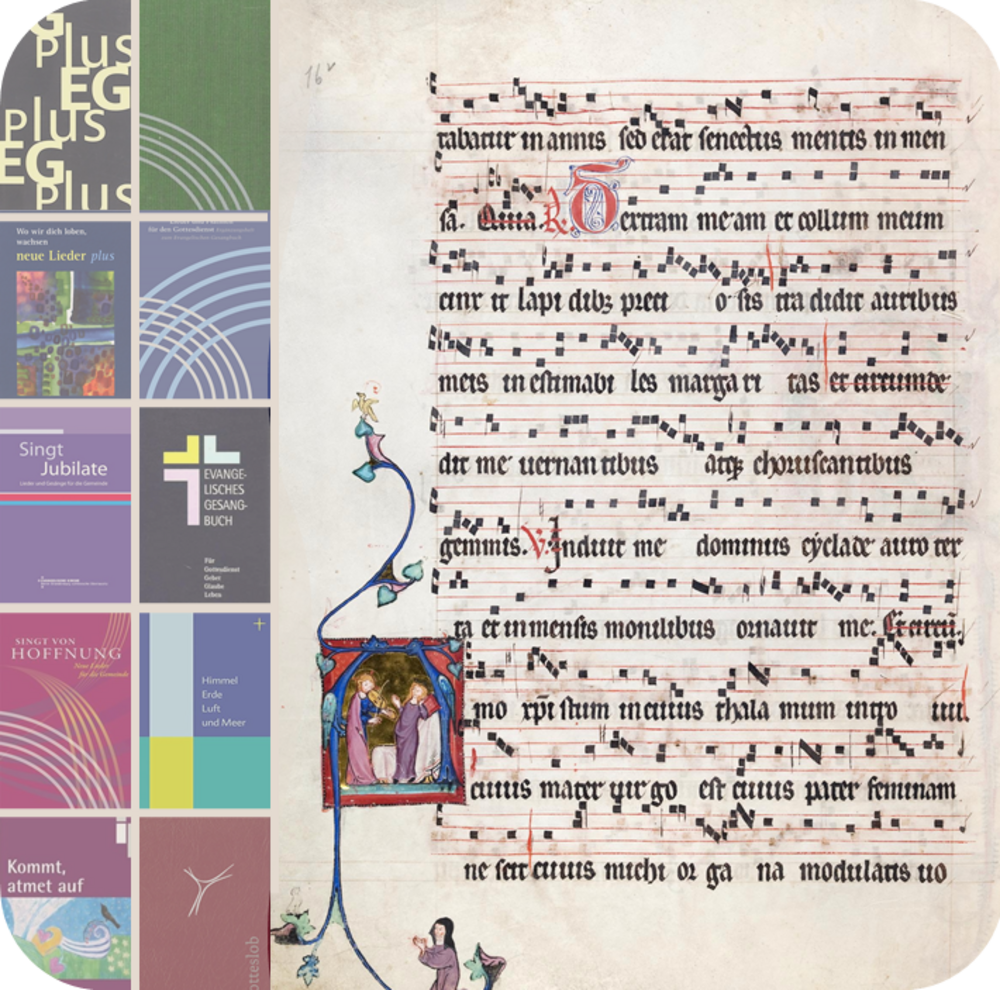 G
Plus
EG
plus
EG
Plus
Wo wir dich loben,
wachsen
neue Lieder plus
für den Gottesdienst
Singt
Jubilate
Lieder und Gesänge für die Gemeinde
EVANGE-
LISCHES
GESANG-
BUCH
Für
Gottesdienst
Gebet
Glaube
Leben
SINGT VON
HOFFNUNG
Neue Lieder
für die Gemeinde
+
Himmel
Erde
Luft
und Meer
Kommt,
atmet auf
otteslob
16v
tabatur in annis sed erat senectus mentis in men
sa. R. Dextram meam et collum meum
cinx it lapi dibꝫ preci o sis tra didit auribus
meis in estimabi les marga ri tas et circumde
dit me uernan tibus atqꝫ choruscantibus
gemmis. V. Induit me dominus cyclade auro tex
ta et inmensis monilibus ornauit me.
mo xp̄i stum in cuius thala mum intro iui.
cuius mater uirgo est cuius pater feminam
ne scit cuius michi or ga na modulatis uo